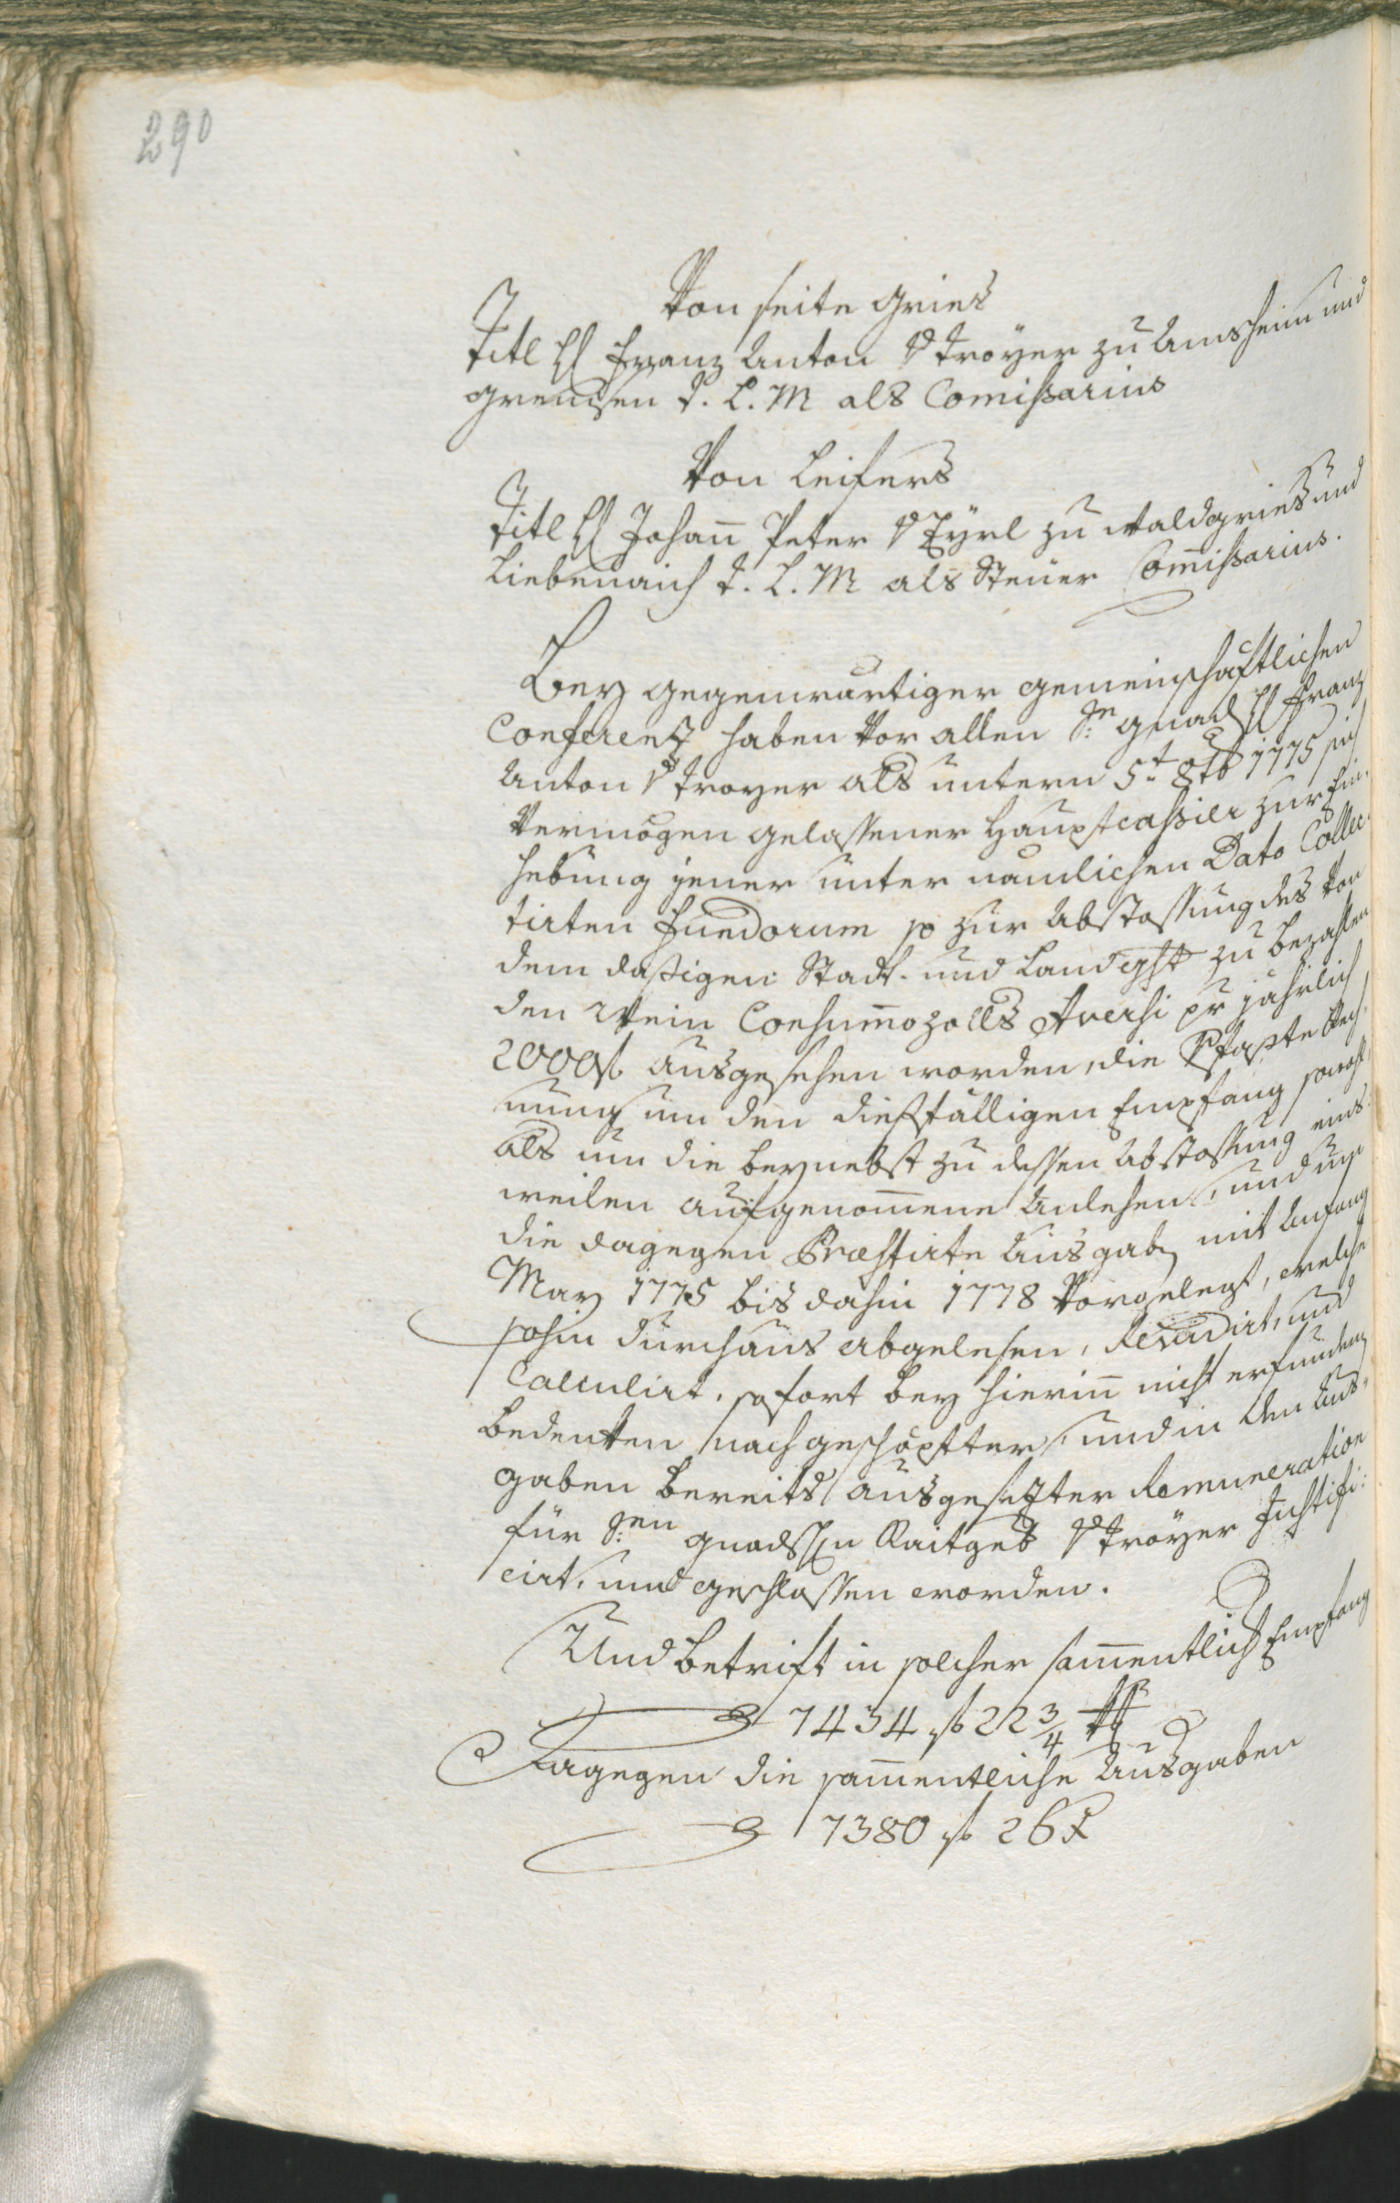 290
Von seite Gries
Titl H Franz Anton v Troÿer zu Umsheim und
Greuthen T. L. M als Comißarius
Von Leifers
Titl H Johañ Peter v Eÿrl zu Waldgries und
Liebenaich T. L. M als Steuer Com̃ißarius.
Bey gegenwärtiger gemeinschaftlichen
Conferenz haben vor allen Se: gnad H Franz
Anton v Troyer als untern 5t 8tb 1775 sich
Vermögen gelassener Hauptcassier zur Ein-
hebung jener unter naemlichen Dato Collec-
tirten Fundorum so zur Abstossung des von
dem dasigen Stadt- und Landght zu bezahlen
den Wein Consum̃ozolls Aversi pr jährlich
2000 f. ausgesehen worden, die Rech-
nung um den dießfälligen Empfang sowohl
als um die beynebst zu dessen Abstossung eins-
weilen aufgenom̃ene Anlehen, und um
die dagegen Præstirte Ausgaben mit Anfang
May 1775 bis dahin 1778 Vorgelegt, welche
sohin durchaus abgelesen, Revidirt, und
Calculirt, sofort bey hieriñ nicht erfunden
Bedenken nach geschöpfter, und in den Aus-
gaben bereits ausgesezter Remuneration
für S:en gnadHn Raitgeb v Troÿer Justifi-
cirt, und geschlossen worden.
Und betrift in solcher sam̃entlich Empfang
7434 f 22 3/4 x
Dagegen die sam̃entliche Ausgaben
7380 f 26 x